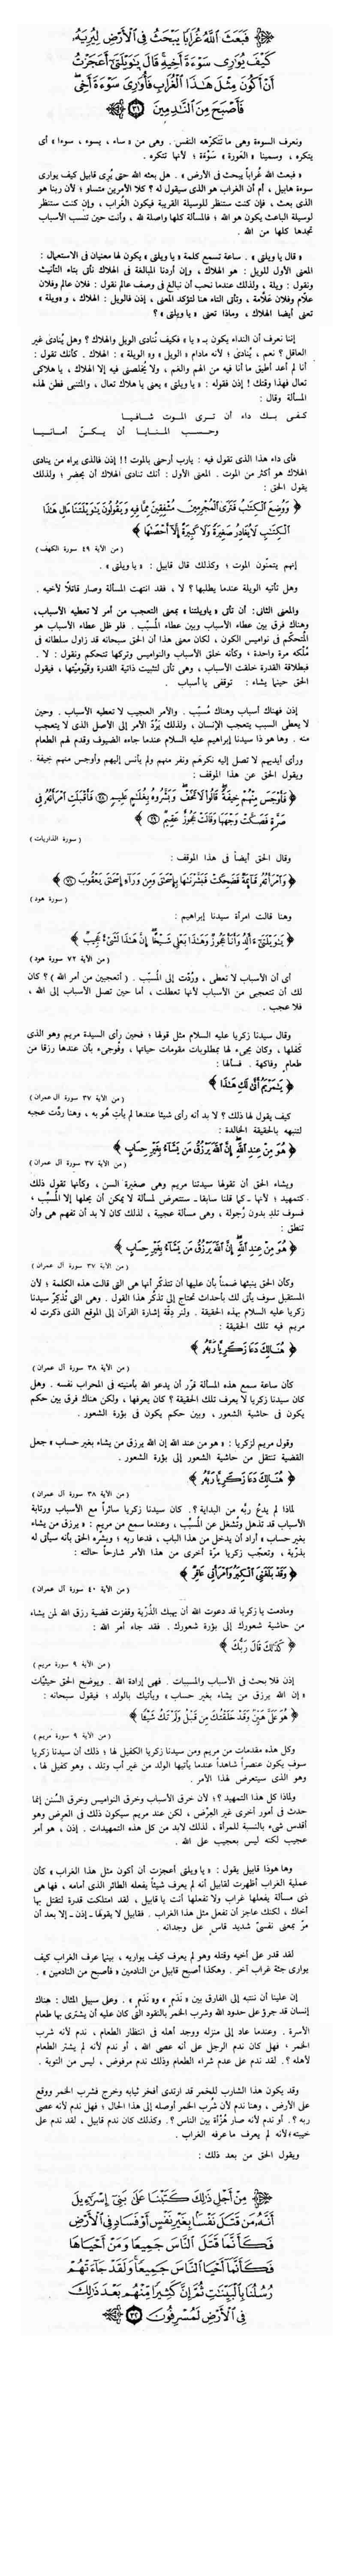 فَبَعَثَ اللَّهُ غُرَابًا يَبْحَثُ فِي الْأَرْضِ لِيُرِيَهُ
كَيْفَ يُوَارِي سَوْءَةَ أَخِيهِ قَالَ يَا وَيْلَتَى أَعَجَزْتُ
أَنْ أَكُونَ مِثْلَ هَذَا الْغُرَابِ فَأُوَارِيَ سَوْءَةَ أَخِي
فَأَصْبَحَ مِنَ النَّادِمِينَ ٣١
ونعرف السوءة وهى ما تتكرّهه النفس . وهى من « ساء ، يسوء ، سوءا » أى
يتكره ، وسمينا « العورة » سَوْءَة ؛ لأنها تتكره .
« فبعث الله غُراباً يبحث فى الأرض » . هل بعثه الله حتى يُرى قابيل كيف يوارى
سوءة هابيل ، أم أن الغراب هو الذى سيقول له ؟ كلا الأمرين متساوٍ ؛ لأن ربنا هو
الذى بعث ، فإن كنت ستنظر للوسيلة القريبة فيكون الغُراب ، وإن كنت ستنظر
لوسيلة الباعث يكون هو الله ؛ فالمسألة كلها واصلة لله ، وأنت حين تنسب الأسباب
تجدها كلها من الله .
« قال يا ويلتى » . ساعة تسمع كلمة « يا ويلتى » يكون لها معنيان فى الاستعمال :
المعنى الأول للويل : هو الهلاك ، وإن أردنا المبالغة فى الهلاك نأتى بتاء التأنيث
ونقول : ويلة ، ولذلك عندما نحب أن نبالغ فى وصف عالم نقول : فلان عالم وفلان
علّام وفلان علّامة ، وتأتى التاء هنا لتؤكد المعنى ، إذن فالويل : الهلاك ، و « ويلة »
تعنى أيضا الهلاك ، وماذا تعنى « يا ويلتى » ؟
إننا نعرف أن النداء يكون بـ « يا » فكيف نُنادى الويل والهلاك ؟ وهل يُنادى غير
العاقل ؟ نعم ، يُنادى ؛ لأنه مادام « الويل » و« الويلة » : الهلاك . كأنك تقول :
أنا لم أعد أطيق ما أنا فيه من الهم والغم ، ولا يخلصنى فيه إلا الهلاك ، يا هلاكى
تعال فهذا وقتك ! إذن فقوله : « يا ويلتى » يعنى يا هلاك تعال ، والمتنبى فطن لهذه
المسألة وقال :
كفى بك داء أن ترى الموت شافيا
وحسب المنايا أن يكنّ أمانيا
فأى داء هذا الذى تقول فيه : يارب أرحنى بالموت !! إذن فالذى يراه من ينادى
الهلاك هو أكثر من الموت . المعنى الأول : أنك تنادى الهلاك أن يحضر ؛ ولذلك
يقول الحق :
﴿ وَوُضِعَ الْكِتَابُ فَتَرَى الْمُجْرِمِينَ مُشْفِقِينَ مِمَّا فِيهِ وَيَقُولُونَ يَا وَيْلَتَنَا مَالِ هَذَا
الْكِتَابِ لَا يُغَادِرُ صَغِيرَةً وَلَا كَبِيرَةً إِلَّا أَحْصَاهَا ﴾
( من الآية ٤٩ سورة الكهف )
إنهم يتمنّون الموت ؛ وكذلك قال قابيل : « يا ويلتى » .
وهل تأتيه الويلة عندما يطلبها ؟ لا ، فقد انتهت المسألة وصار قاتلًا لأخيه .
والمعنى الثانى : أن تأتى « ياويلتنا » بمعنى التعجب من أمر لا تعطيه الأسباب ،
وهناك فرق بين عطاء الأسباب وبين عطاء المُسبّب . فلو ظل عطاء الأسباب هو
المُتحكّم فى نواميس الكون ، لكان معنى هذا أن الحق سبحانه قد زاول سلطانه فى
مُلكه مرة واحدة ، وكأنه خلق الأسباب والنواميس وتركها تتحكم ونقول : لا .
فبطلاقة القدرة خلقت الأسباب ، وهى تأتى لتثبيت ذاتية القدرة وقيّوميّتها ، فيقول
الحق حينما يشاء : توقفى يا أسباب .
إذن فهناك أسباب وهناك مُسبّب . والأمر العجيب لا تعطيه الأسباب . وحين
لا يعطى السبب يتعجب الإنسان ، ولذلك يَرُدّ الأمر إلى الأصل الذى لا يتعجب
منه . وها هو ذا سيدنا إبراهيم عليه السلام عندما جاءه الضيوف وقدم لهم الطعام
ورأى أيديهم لا تصل إليه نكرهم ونفر منهم ولم يأنس إليهم وأوجس منهم خيفة .
ويقول الحق عن هذا الموقف :
﴿ فَأَوْجَسَ مِنْهُمْ خِيفَةً قَالُوا لَا تَخَفْ وَبَشَّرُوهُ بِغُلَامٍ عَلِيمٍ ٢٨ فَأَقْبَلَتِ امْرَأَتُهُ فِي
صَرَّةٍ فَصَكَّتْ وَجْهَهَا وَقَالَتْ عَجُوزٌ عَقِيمٌ ٢٩ ﴾
( سورة الذاريات )
وقال الحق أيضاً فى هذا الموقف :
﴿ وَامْرَأَتُهُ قَائِمَةٌ فَضَحِكَتْ فَبَشَّرْنَاهَا بِإِسْحَاقَ وَمِنْ وَرَاءِ إِسْحَاقَ يَعْقُوبَ ٧١ ﴾
( سورة هود )
وهنا قالت امرأة سيدنا إبراهيم :
﴿ يَا وَيْلَتَى أَأَلِدُ وَأَنَا عَجُوزٌ وَهَذَا بَعْلِي شَيْخًا إِنَّ هَذَا لَشَيْءٌ عَجِيبٌ ﴾
( من الآية ٧٢ سورة هود )
أى أن الأسباب لا تعطى ، ورُدّت إلى المُسبّب . ( أتعجبين من أمر الله ) ؟ كان
لك أن تتعجبى من الأسباب لأنها تعطلت ، أما حين تصل الأسباب إلى الله ،
فلا عجب .
وقال سيدنا زكريا عليه السلام مثل قولها ؛ فحين رأى السيدة مريم وهو الذى
كفلها ، وكان يجىء لها بمطلوبات مقومات حياتها ، وفُوجىء بأن عندها رزقا من
طعام وفاكهة . فسألها :
﴿ يَا مَرْيَمُ أَنَّى لَكِ هَذَا ﴾
( من الآية ٣٧ سورة آل عمران )
كيف يقول لها ذلك ؟ لا بد أنه رأى شيئا عندها لم يأتِ هُو به ، وهنا ردّت عجبه
لتنبيه بالحقيقة الخالدة :
﴿ هُوَ مِنْ عِنْدِ اللَّهِ إِنَّ اللَّهَ يَرْزُقُ مَنْ يَشَاءُ بِغَيْرِ حِسَابٍ ﴾
( من الآية ٣٧ سورة آل عمران )
ويشاء الحق أن تقولها سيدتنا مريم وهى صغيرة السن ، وكأنها تقول ذلك
كتمهيد ؛ لأنها - كما قلنا سابقا - ستتعرض لمسألة لا يمكن أن يحلها إلا المُسبّب ،
فسوف تلد بدون رُجولة ، وهى مسألة عجيبة ، لذلك كان لا بد أن تفهم هى وأن
تنطق :
﴿ هُوَ مِنْ عِنْدِ اللَّهِ إِنَّ اللَّهَ يَرْزُقُ مَنْ يَشَاءُ بِغَيْرِ حِسَابٍ ﴾
( من الآية ٣٧ سورة آل عمران )
وكأن الحق ينبئها ضمناً بأن عليها أن تتذكّر أنها هى التى قالت هذه الكلمة ؛ لأن
المستقبل سوف يأتى لك بأحداث تحتاج إلى تذكّر هذا القول . وهى التى تُذكّر سيدنا
زكريا عليه السلام بهذه الحقيقة . ولنر دِقّة إشارة القرآن إلى الموقع الذى ذكرت له
مريم فيه تلك الحقيقة :
﴿ هُنَالِكَ دَعَا زَكَرِيَّا رَبَّهُ ﴾
( من الآية ٣٨ سورة آل عمران )
كأن ساعة سمع هذه المسألة قرّر أن يدعو الله بأمنيته فى المحراب نفسه . وهل
كان سيدنا زكريا لا يعرف تلك الحقيقة ؟ كان يعرفها ، ولكن هناك فرق بين حكم
يكون فى حاشية الشعور ، وبين حكم يكون فى بؤرة الشعور .
وقول مريم لزكريا : « هو من عند الله إن الله يرزق من يشاء بغير حساب » جعل
القضية تنتقل من حاشية الشعور إلى بؤرة الشعور .
﴿ هُنَالِكَ دَعَا زَكَرِيَّا رَبَّهُ ﴾
( من الآية ٣٨ سورة آل عمران )
لماذا لم يدعُ ربّه من البداية ؟ . كان سيدنا زكريا سائراً مع الأسباب ورتابة
الأسباب قد تذهل وتُشغل عن المُسبّب ، وعندما سمع من مريم : « يرزق من يشاء
بغير حساب » أراد أن يدخل من هذا الباب ، فدعا ربه ؛ وبشّره الحق بأنه سيأتى له
بذرّية ، وتعجّب زكريا مرّة أخرى من هذا الأمر شارحاً حالته :
﴿ وَقَدْ بَلَغَنِيَ الْكِبَرُ وَامْرَأَتِي عَاقِرٌ ﴾
( من الآية ٤٠ سورة آل عمران )
ومادمت يا زكريا قد دعوت الله أن يهبك الذُرّية وقفزت قضية رزق الله لمن يشاء
من حاشية شعورك إلى بؤرة شعورك . فقد جاء أمر الله :
﴿ كَذَلِكَ قَالَ رَبُّكَ ﴾
( من الآية ٩ سورة مريم )
إذن فلا بحث فى الأسباب والمسببات . فهى إرادة الله . ويوضح الحق حيثيّات
« إن الله يرزق من يشاء بغير حساب » ويأتيك بالولد ؛ فيقول سبحانه :
﴿ هُوَ عَلَيَّ هَيِّنٌ وَقَدْ خَلَقْتُكَ مِنْ قَبْلُ وَلَمْ تَكُ شَيْئًا ﴾
( من الآية ٩ سورة مريم )
وكل هذه مقدمات من مريم ومن سيدنا زكريا الكفيل لها ؛ ذلك أن سيدنا زكريا
سوف يكون عنصراً شاهداً عندما يأتيها الولد من غير أب وتلد ، وهو كفيل لها ،
وهو الذى سيتعرض لهذا الأمر .
ولماذا كل هذا التمهيد ؟؛ لأن خرق الأسباب وخرق النواميس وخرق السُنن إنما
حدث فى أمور أخرى غير العِرْض ، لكن عند مريم سيكون ذلك فى العرض وهو
أقدس شىء بالنسبة للمرأة ، لذلك لابد من كل هذه التمهيدات . إذن ، هو أمر
عجيب لكنه ليس بعجيب على الله .
وها هوذا قابيل يقول : « يا ويلتى أعجزت أن أكون مثل هذا الغراب » كأن
عملية الغراب أظهرت لقابيل أنه لم يعرف شيئاً يفعله الطائر الذى أمامه ، فها هى
ذى مسألة يفعلها غراب ولا تفعلها أنت يا قابيل ، لقد امتلكت قدرة لتقتل بها
أخاك ، لكنك عاجز أن تفعل مثل هذا الغراب . فقابيل لا يقولها - إذن - إلا بعد أن
مرّ بمعنى نفسىّ شديد قاسٍ على وجدانه .
لقد قدر على أخيه وقتله وهو لم يعرف كيف يواريه ، بينما عرف الغراب كيف
يوارى جثة غراب آخر . وهكذا أصبح قابيل من النادمين « فأصبح من النادمين » .
إن علينا أن ننتبه إلى الفارق بين « نَدَم » و« نَدَم » . وعلى سبيل المثال : هناك
إنسان قد جرؤ على حدود الله وشرب الخمر بالنقود التى كان عليه أن يشترى بها طعام
الأسرة . وعندما عاد إلى منزله ووجد أهله فى انتظار الطعام ، ندم لأنه شرب
الخمر ، فهل كان ندم الرجل على أنه عصى الله ، أو ندم لأنه لم يشتر الطعام
لأهله ؟. لقد ندم على عدم شراء الطعام وذلك ندم مرفوض ، ليس من التوبة .
وقد يكون هذا الشارب للخمر قد ارتدى أفخر ثيابه وخرج فشرب الخمر ووقع
على الأرض ، وهنا ندم لأن شُرب الخمر أوصله إلى هذا الحال ؛ فهل ندم لأنه عصى
ربه ؟. أو ندم لأنه صار هُزْأة بين الناس ؟. وكذلك كان ندم قابيل ، لقد ندم على
خيبته ؛ لأنه لم يعرف ما عرفه الغراب .
ويقول الحق من بعد ذلك :
مِنْ أَجْلِ ذَلِكَ كَتَبْنَا عَلَى بَنِي إِسْرَائِيلَ
أَنَّهُ مَنْ قَتَلَ نَفْسًا بِغَيْرِ نَفْسٍ أَوْ فَسَادٍ فِي الْأَرْضِ
فَكَأَنَّمَا قَتَلَ النَّاسَ جَمِيعًا وَمَنْ أَحْيَاهَا
فَكَأَنَّمَا أَحْيَا النَّاسَ جَمِيعًا وَلَقَدْ جَاءَتْهُمْ
رُسُلُنَا بِالْبَيِّنَاتِ ثُمَّ إِنَّ كَثِيرًا مِنْهُمْ بَعْدَ ذَلِكَ
فِي الْأَرْضِ لَمُسْرِفُونَ ٣٢